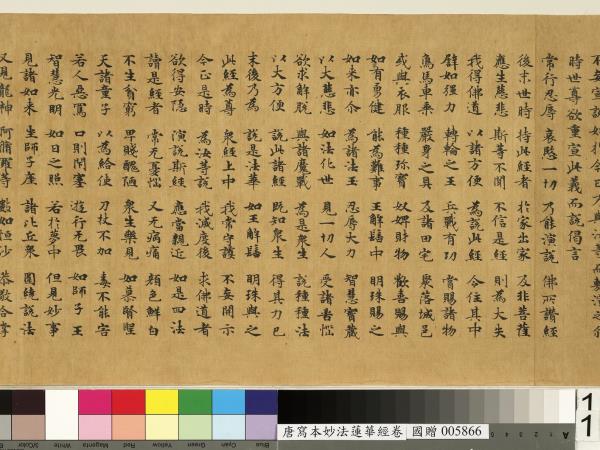 不妄宣說始於今日乃與汝等而敷演之尒
時世尊欲重宣此義而說偈言
常行忍辱 哀愍一切 乃能演說 佛所讚經
後末世時 持此經者 於家出家 及非菩薩
應生慈悲 斯等不聞 不信是經 則為大失
我得佛道 以諸方便 為說此經 令住其中
譬如强力 轉輪之王 兵戰有功 賞賜諸物
象馬車乘 嚴身之具 及諸田宅 聚落城邑
或與衣服 種種珍寶 奴婢財物 歡喜賜與
如有勇健 能為難事 王解髻中 明珠賜之
如來亦尒 為諸法王 忍辱大力 智慧寶藏
以大慈悲 如法化世 見一切人 受諸苦惱
欲求解脫 與諸魔戰 為是眾生 說種種法
以大方便 說此諸經 既知眾生 得其力已
末後乃為 說是法華 如王解髻 明珠與之
此經為尊 眾經上中 我常守護 不妄開示
今正是時 為汝等說 我滅度後 求佛道者
欲得安隱 演說斯經 應當親近 如是四法
讀是經者 常无憂惱 又无病痛 顏色鮮白
不生貧窮 卑賤醜陋 眾生樂見 如慕賢聖
天諸童子 以為給使 刀杖不加 毒不能害
若人惡罵 口則閉塞 遊行无畏 如師子王
智慧光明 如日之照 若於夢中 但見妙事
見諸如來 坐師子座 諸比丘眾 圍繞說法
又見龍神 阿脩羅等 數如恒沙 恭敬合掌
3/Color White Magenta Red Yellow Green Cyan Blue
唐寫本妙法蓮華經卷 國贈 005866
A
11